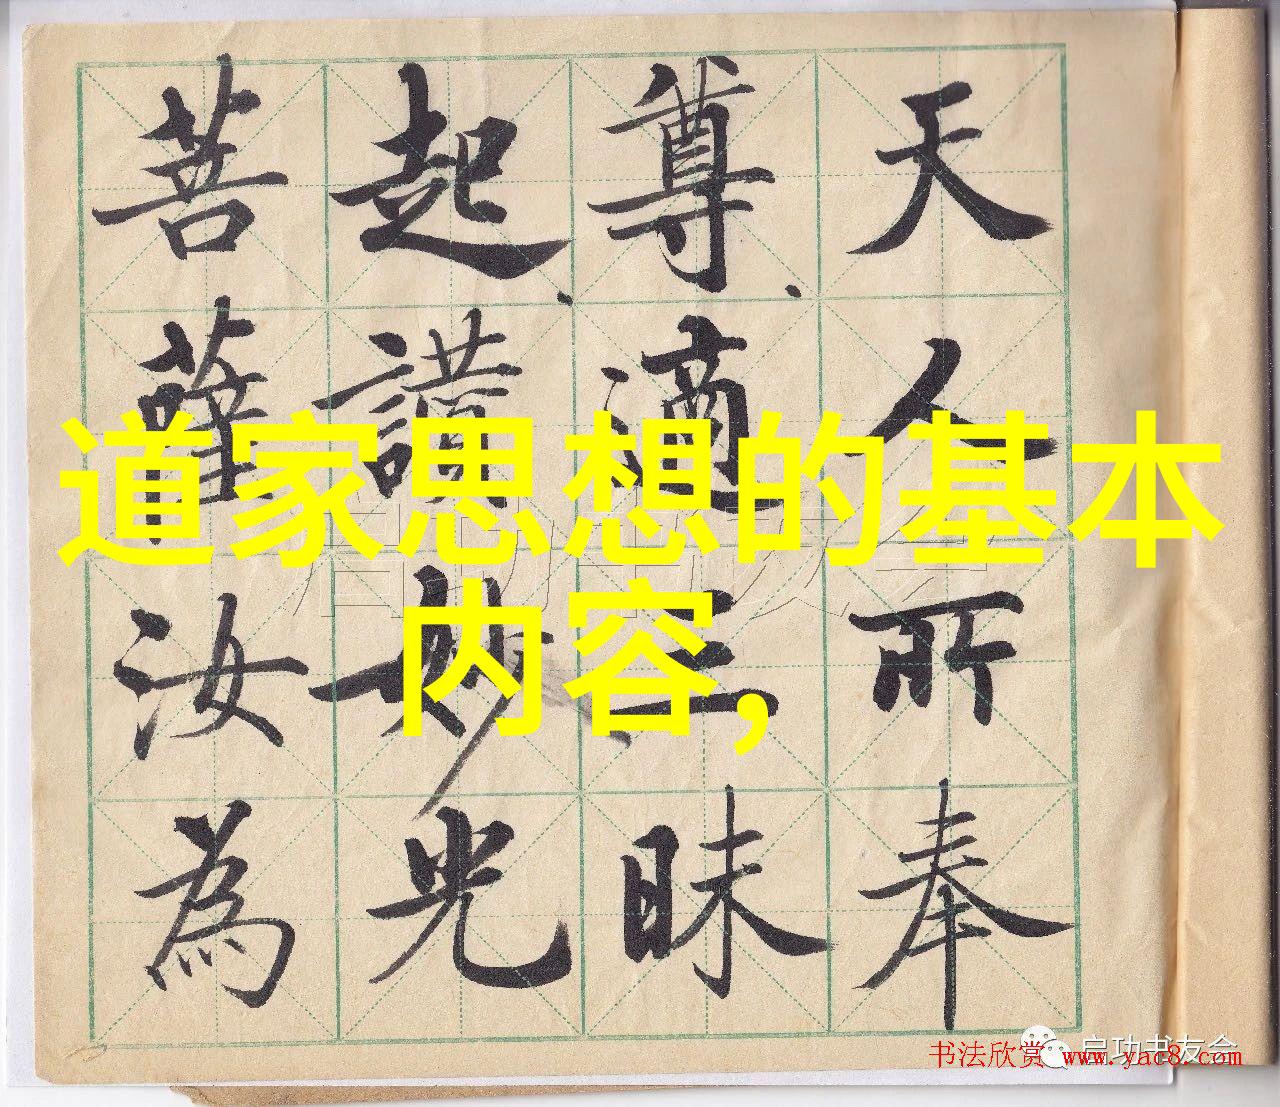 天人所奉
尊、適三昧
起、妙光
菩薩汝為
道家思想的基本
内容,
启功书友会
启功书友会
书法欣赏 www.yac8.com